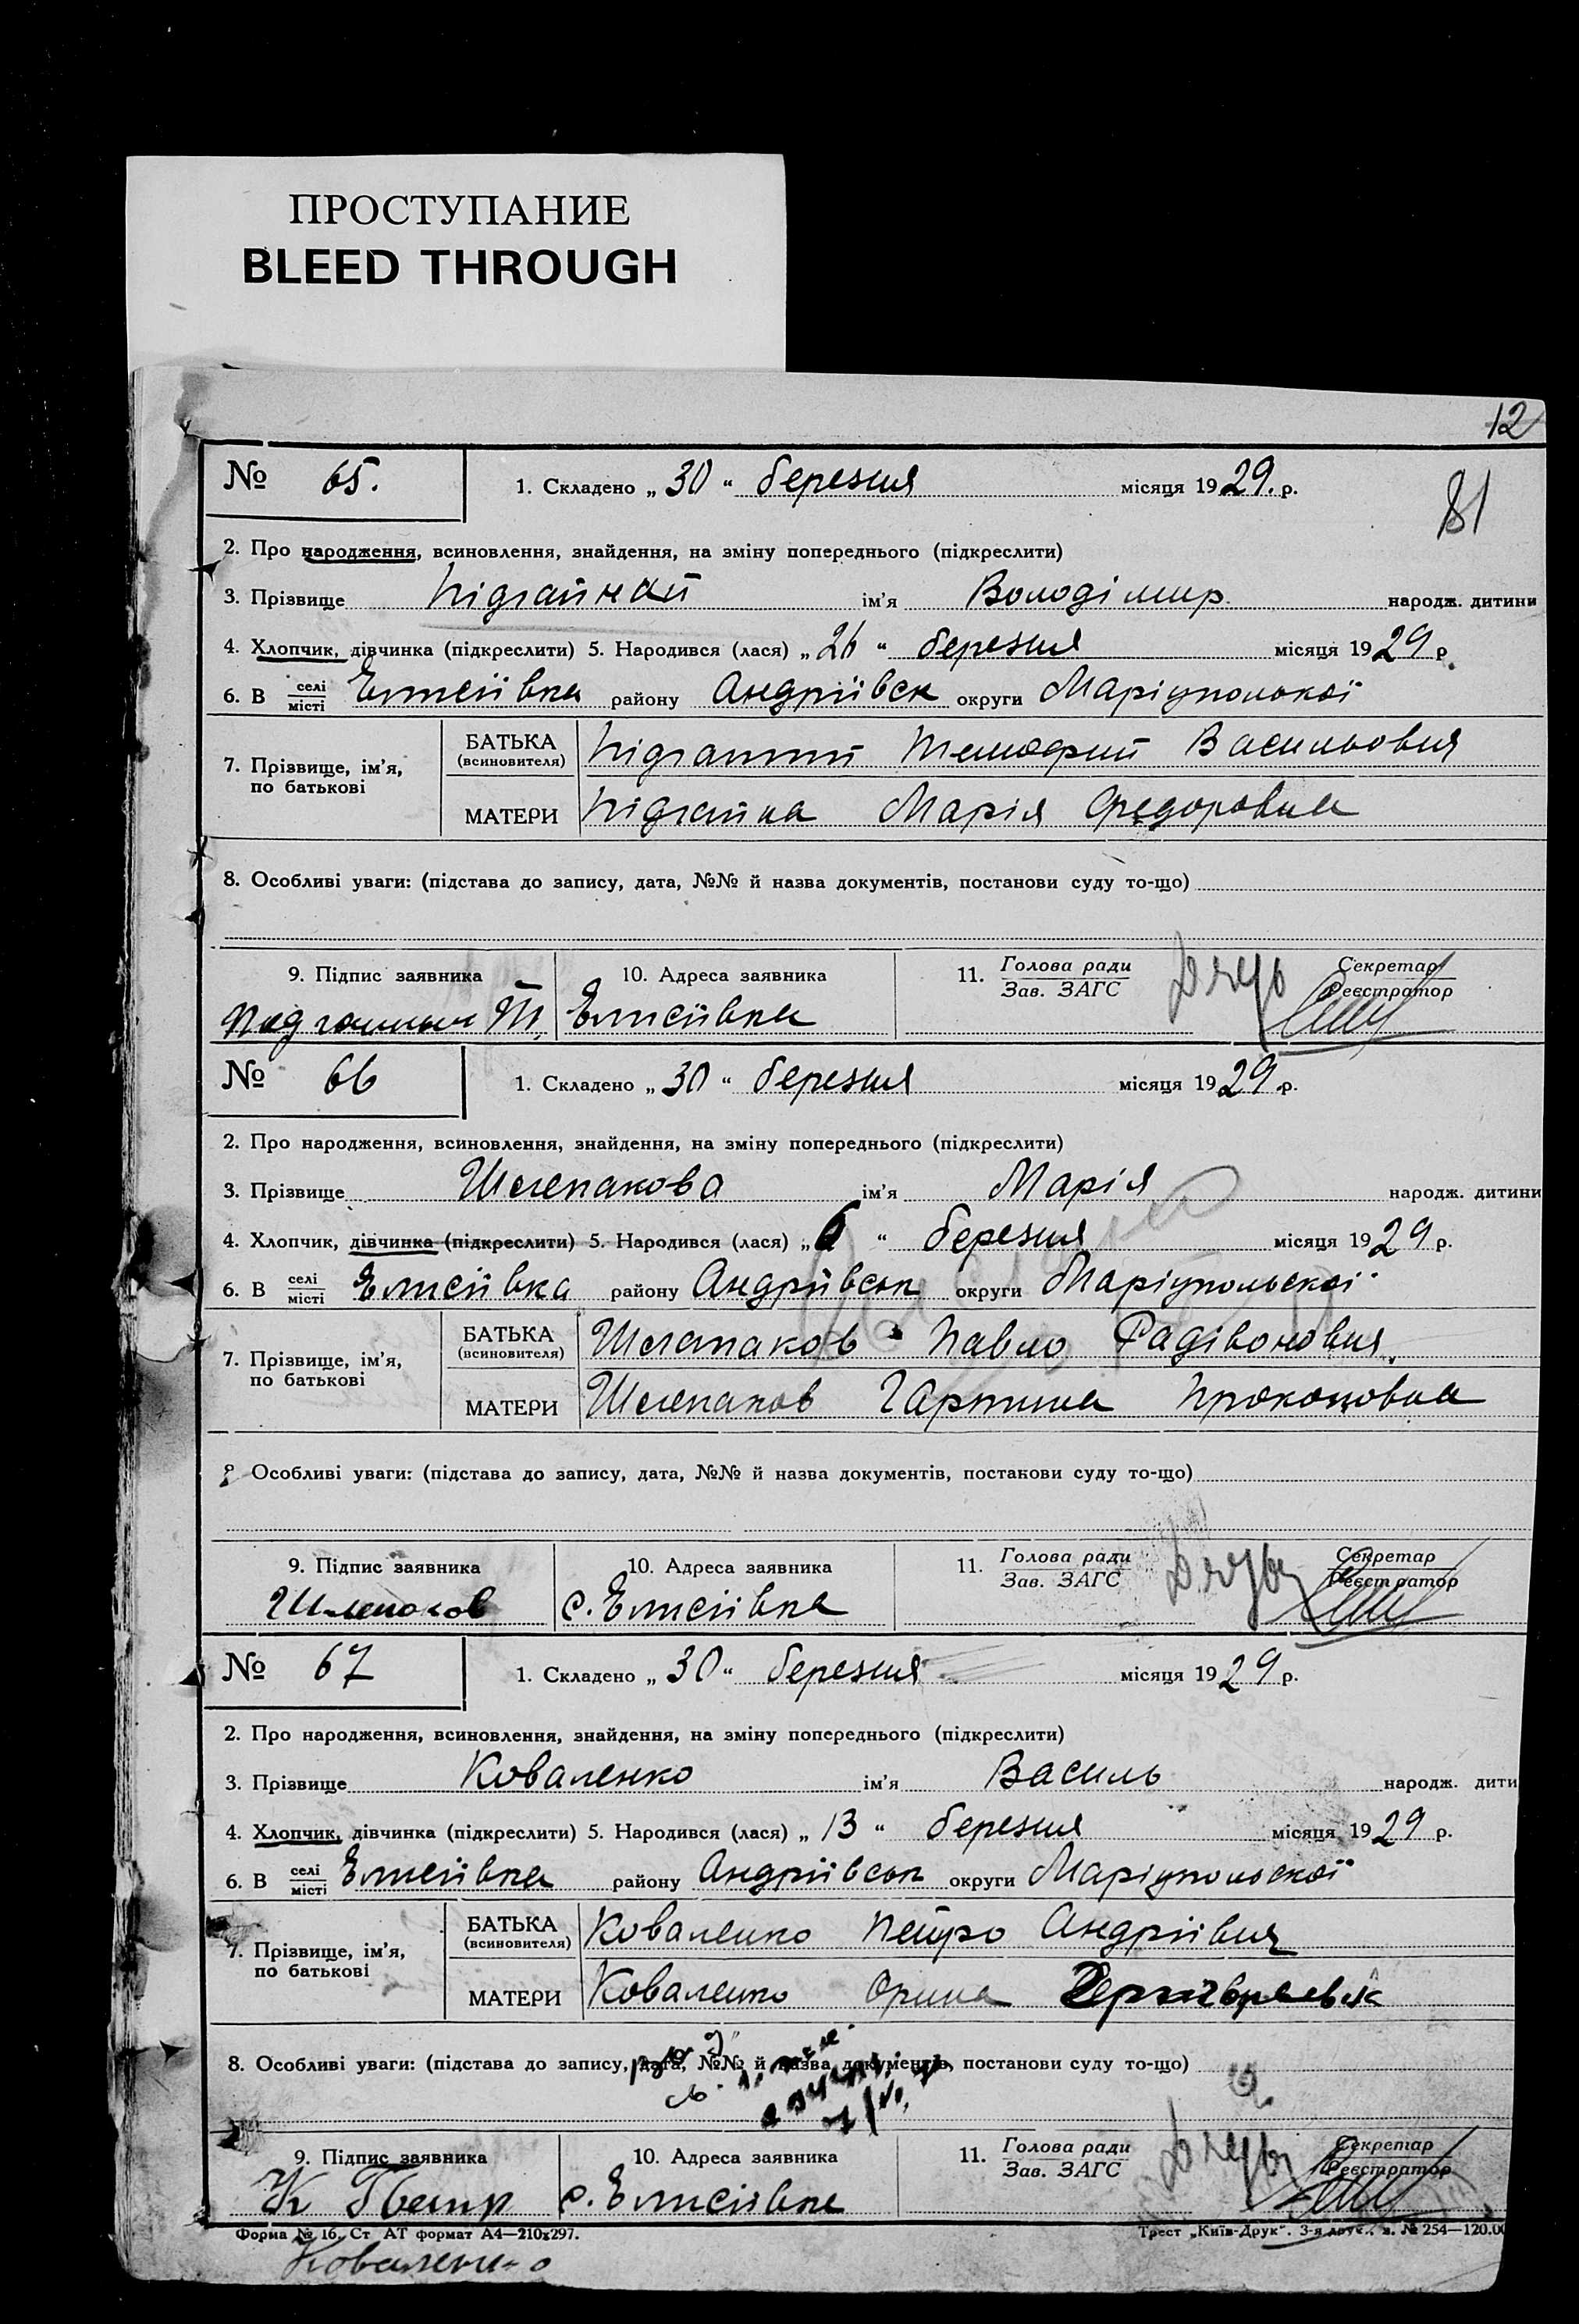 ПРОСТУПАНИЕ
BLEED THROUGH
12
№ 65. 1. Складено „ 30 “ березня місяця 1929. р.
81
2. Про народження, всиновлення, знайдення, на зміну попереднього (підкреслити)
3. Прізвище Підгайний ім'я Володімир народж. дитини
4. Хлопчик, дівчинка (підкреслити) 5. Народився (лася) „ 26 “ березня місяця 1929 р.
6. В селі/місті Елисіївка району Андріївськ округи Маріупольскої
7. Прізвище, ім'я, по батькові
БАТЬКА (всиновителя) Підгайний Тимофий Васильович
МАТЕРИ Підгайна Марія Федоровна
8. Особливі уваги: (підстава до запису, дата, №№ й назва документів, постанови суду то-що)
9. Підпис заявника 10. Адреса заявника 11. Голова ради/Зав. ЗАГС Секретар/Реєстратор
Т. Елисіївка
№ 66 1. Складено „ 30 “ березня місяця 1929 р.
2. Про народження, всиновлення, знайдення, на зміну попереднього (підкреслити)
3. Прізвище Шлепакова ім'я Марія народж. дитини
4. Хлопчик, дівчинка (підкреслити) 5. Народився (лася) „ 6 “ березня місяця 1929 р.
6. В селі/місті Елисіївка району Андріївськ округи Маріупольскої
7. Прізвище, ім'я, по батькові
БАТЬКА (всиновителя) Шлепаков Павло Радівонович
МАТЕРИ Шлепаков Гарпина Прокоповна
8 Особливі уваги: (підстава до запису, дата, №№ й назва документів, постанови суду то-що)
9. Підпис заявника 10. Адреса заявника 11. Голова ради/Зав. ЗАГС Секретар/Реєстратор
Шлепоков с. Елисіївка
№ 67 1. Складено „ 30 “ березня місяця 1929 р.
2. Про народження, всиновлення, знайдення, на зміну попереднього (підкреслити)
3. Прізвище Коваленко ім'я Василь народж. дити
4. Хлопчик, дівчинка (підкреслити) 5. Народився (лася) „ 13 “ березня місяця 1929 р.
6. В селі/місті Елисіївка району Андріївськ округи Маріупольскої
7. Прізвище, ім'я, по батькові
БАТЬКА (всиновителя) Коваленко Петро Андріївич
МАТЕРИ Коваленко Орина
8. Особливі уваги: (підстава до запису, дата, №№ й назва документів, постанови суду то-що)
9. Підпис заявника 10. Адреса заявника 11. Голова ради/Зав. ЗАГС Секретар/Реєстратор
К Петр с. Елисіївка
Форма № 16. Ст АТ формат А4—210х297. Трест „Київ-Друк“. 3-я друк., з. № 254—120.00
Коваленко